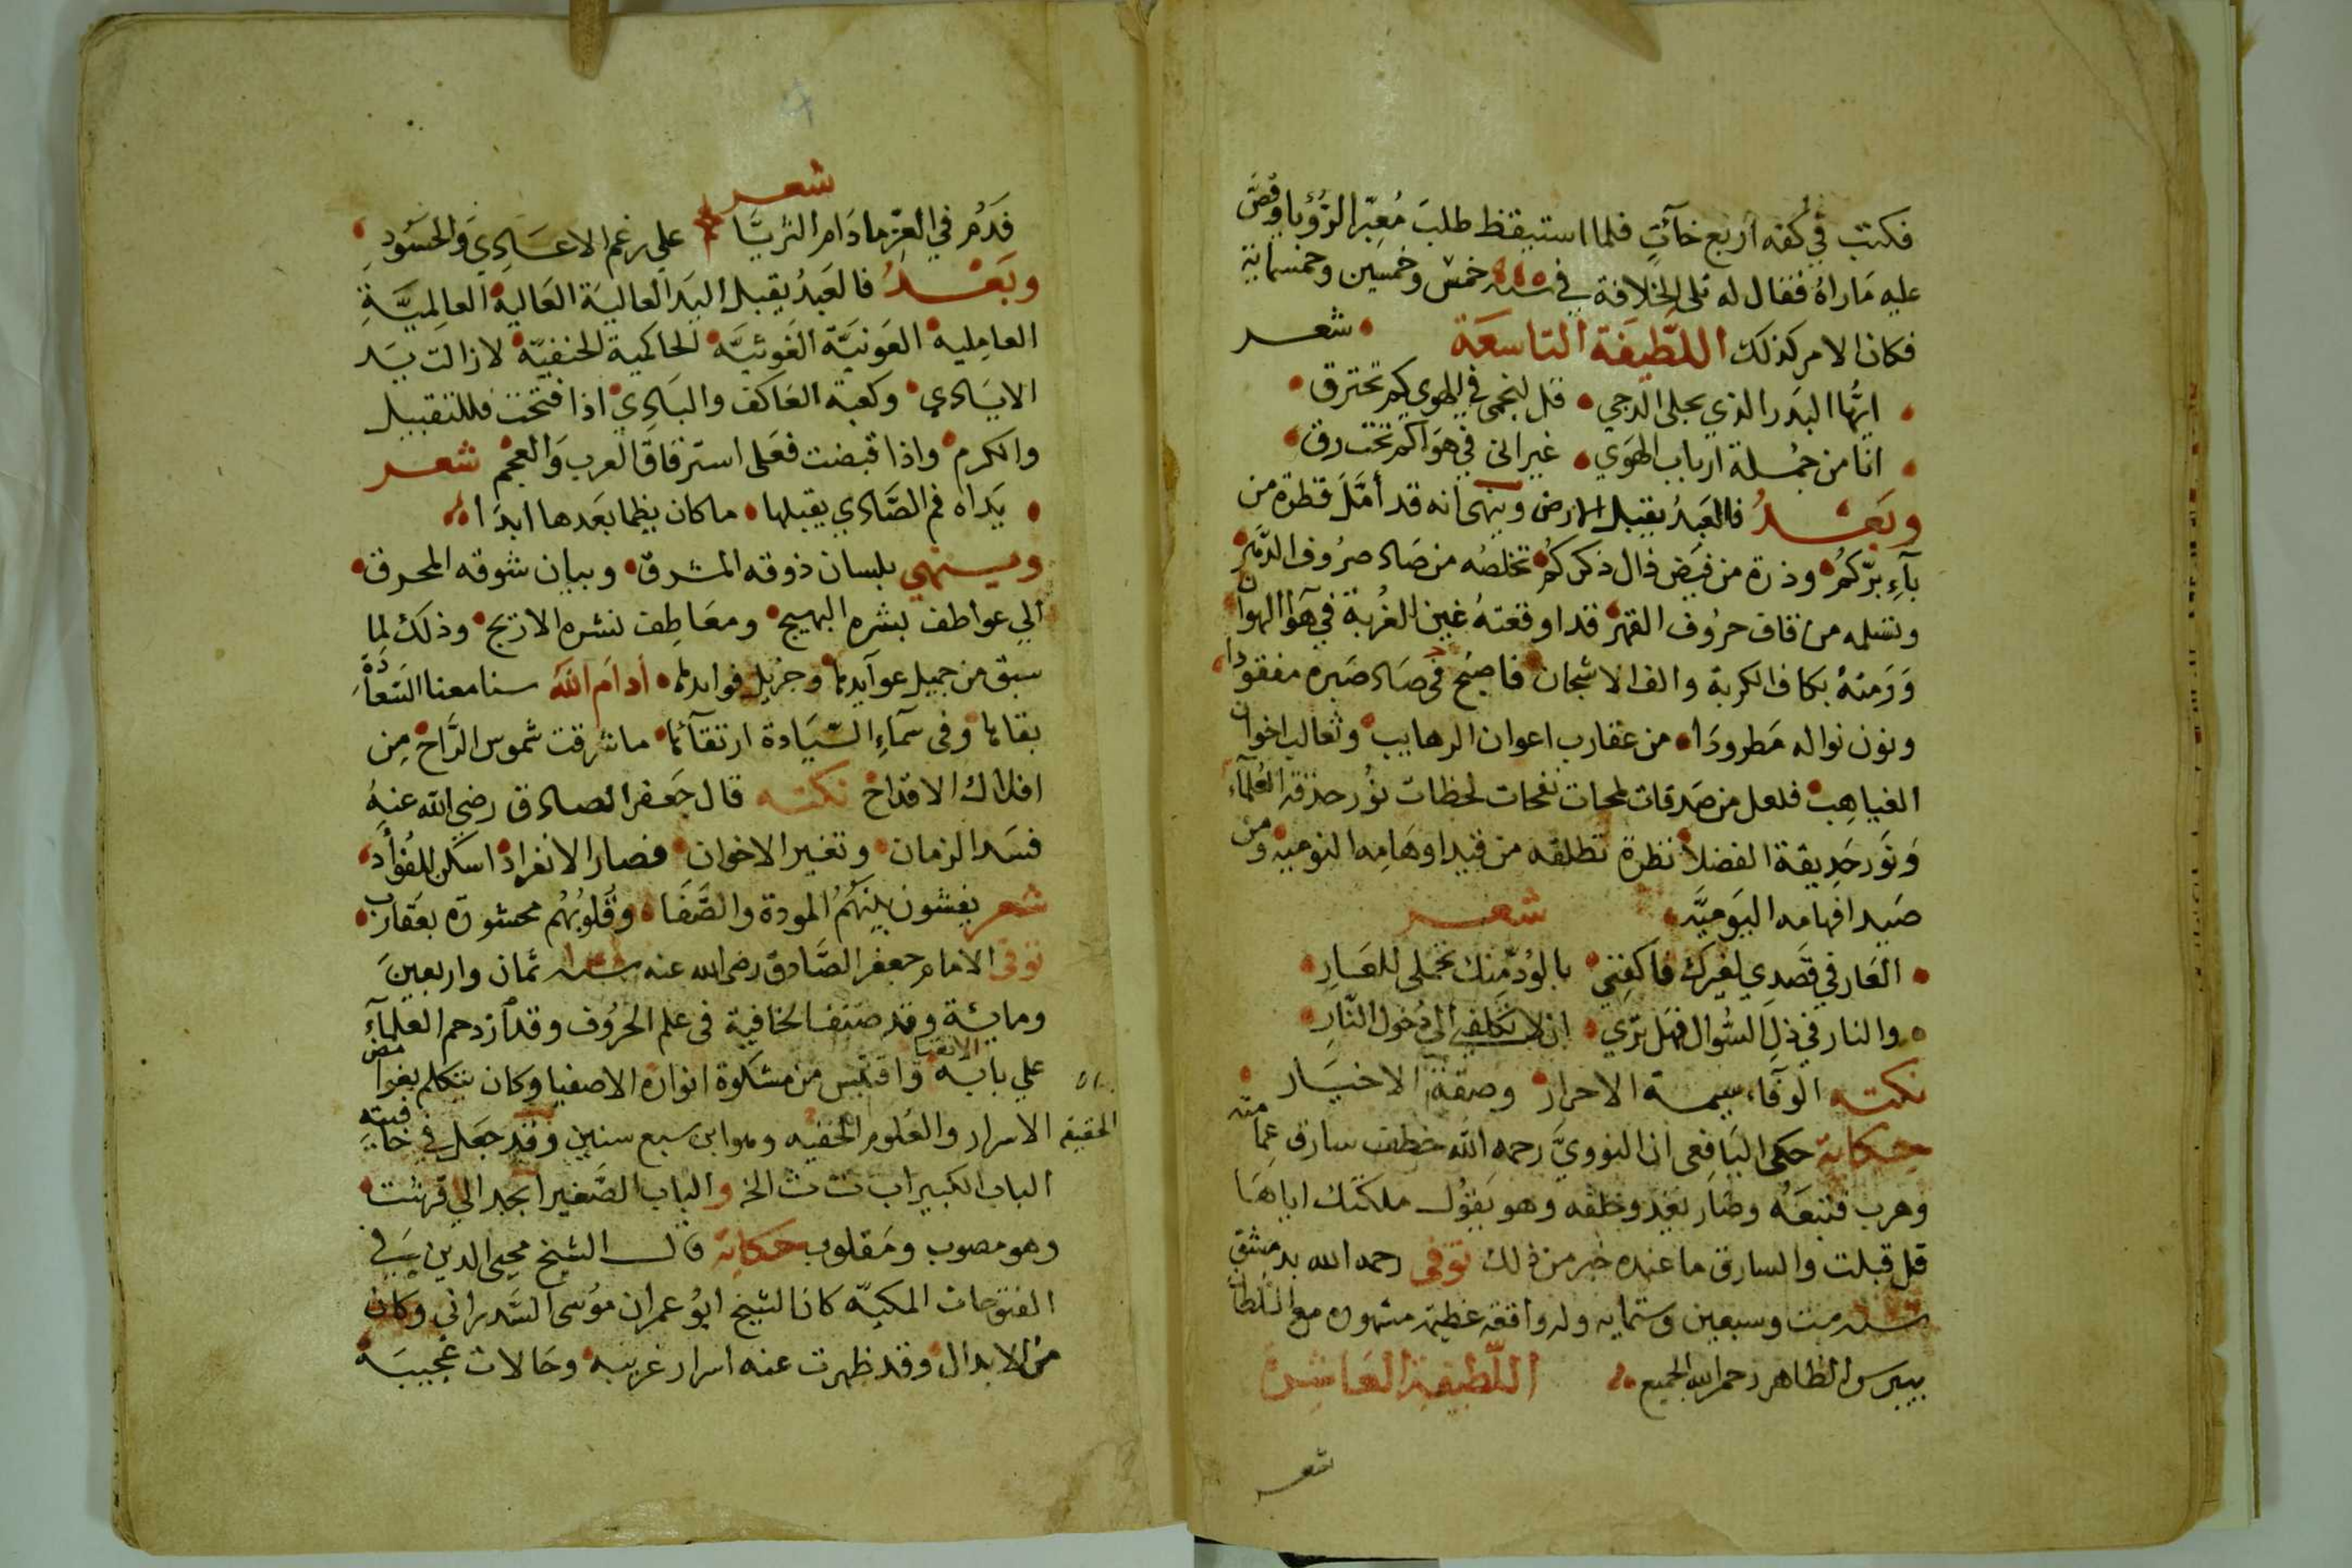 فكتب في كفه اربع خآآت فلما استيقظ طلب مُعبّر الرؤيا وقصّ
عليه مَا راهُ فقال له تلى الخلافة في سنة خمس وخمسين وخمسماية
فكان الامر كذلك اللَّطِيفَة التاسعَة شعر
ايهُّا البَدر الذي يجلى الدجي قل لنجمى في الهوي كم تحترق
انا من جُملة ارباب الهَوي غير انى في هوَاكم تحت رق
وبَعْدُ فالعَبدُ يقبل الارض وينهى انه قد أمَّلَ قطرة من
بآءِ برّكمُ وذرة من فيَض ذال ذكركمُ تخلصُه من صَاد صرُوف الدَّهر
وتسلمه من قاف حرُوف القهر قد اوقعتهُ غين الغُربة في هوَا الهوان
وَرَمتهُ بكاف الكربة والف الاشجان فاصبَح في صَاد صَبره مفقودا
ونون نواله مَطرودَا من عقارب اعوان الرهايب وثعالب اخوان
الغياهِب فلعل من صَدقات لمحات نفحات لحظات نوُر حذقه العُلمآء
وَنَور حَدِيقة الفضلا نظرة تطلقه من قيد اوهَامِه النوميه ومن
صَيد افهامه اليَوميَّه شعر
العَار في قَصَدِي لغيرك فاكفِنِي بالوُد مِّنك تحمُّلى للعَارِ
والنار في ذلِ السُّوال فهَل تَرَي ان لا تكَلفنِي الى دُخول النّارِ
نكته الوفآء سِيمة الاحرار وصفة الاخيَار
حكاية حكى اليَافِعى ان النوويَّ رحمه الله خطف سارق عِمَامته
وهرب فتبعَهُ وصَار يَعْدو خلفه وهو يَقوُل ملكتك اياهَا
قل قبلت والسارق ما عنده خبر من ذلك توُفى رحمه الله بدمشق
سنة ست وسبعين وستمايه وله واقعه عظيمة مشهوره مع السُّلطان
بيبرس الظاهر رحمه الله الجميع اللَّطِيفة العَاشِرة
شعر
شعر
فَدُم في العِزّ ما دَام الثريَّا علي رغم الاعَادِي وَالحسُودِ
وبَعْدُ فالعَبدُ يقبل اليَد العاليَة العَالية العالِميَّةِ
العامِلية العَونيَّة الغَوثيَّه الحاكمية الحنفيّة لا زالت يَد
الايَادي وكعبة العَاكف والبَادِيْ اذا فتحت فللتقبيل
والكرم واذا قبضت فعَلى استرقاق العرب وَالعجم شعر
يَداه فم الصَّادي يقبلها ما كان يظما بَعَدها ابدَا
وينهي بلسان ذوقه المشرق وببان شوقه المحرق
الي عواطف بشره البهيج ومعَاطِف نشره الاريج وذلك لِما
سبق من جميل عوآيدها وجزيل فوايدها أدَام اللّه سنا معنا السّعادَة
بقاها وفى سمآءِ السّيَادة ارتقآئها ما شرقت شموس الرَّاح مِن
افلاك الاقداح نكته قال جَعفر الصادق رضي الله عنهُ
فسَد الزمان وتغير الاخوان فصار الانفراد اسكن للفؤآد
شعر يفشون بَينهُم المودة والصَّفَا وقُلوبُهُم محشوة بعَقارب
توفى الامام جعفر الصَّادق رضى الله عنه سنة ثمان واربعينَ
ومايئة وقد صَنف الخافية فى علم الحرُوف وقد ازدحم العلمآء
علي بابه واقتبس من مشكوة انواره الاصفيا الاتقيا وكان يتكلم بغوامض
الحقيقة الاسرار والعُلوم الخفيه وهو ابن سبع سنين وقد جعَل في خافيته
الباب الكبير اب ت ث الخ والباب الصَّغير ابجد الي قرشت
وهو مصوب ومَقلوب حكاية قال الشيخ محيى الدين في
الفتوحات المكيّه كان الشيخ ابوُ عمران موُسى السَّدراني وكان
من الابدال وقد ظهرت عنه اسرار غريبه وحَالات عجيبَه